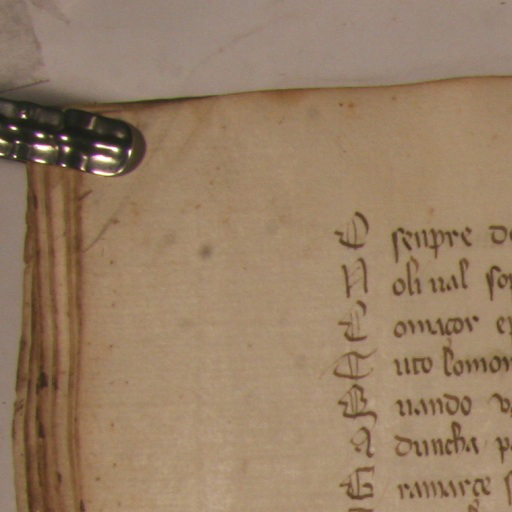 E senpre d
N oli ual so
E omaçor e
T uto lomon
Q uando v
A duncha p
G ramarçe s